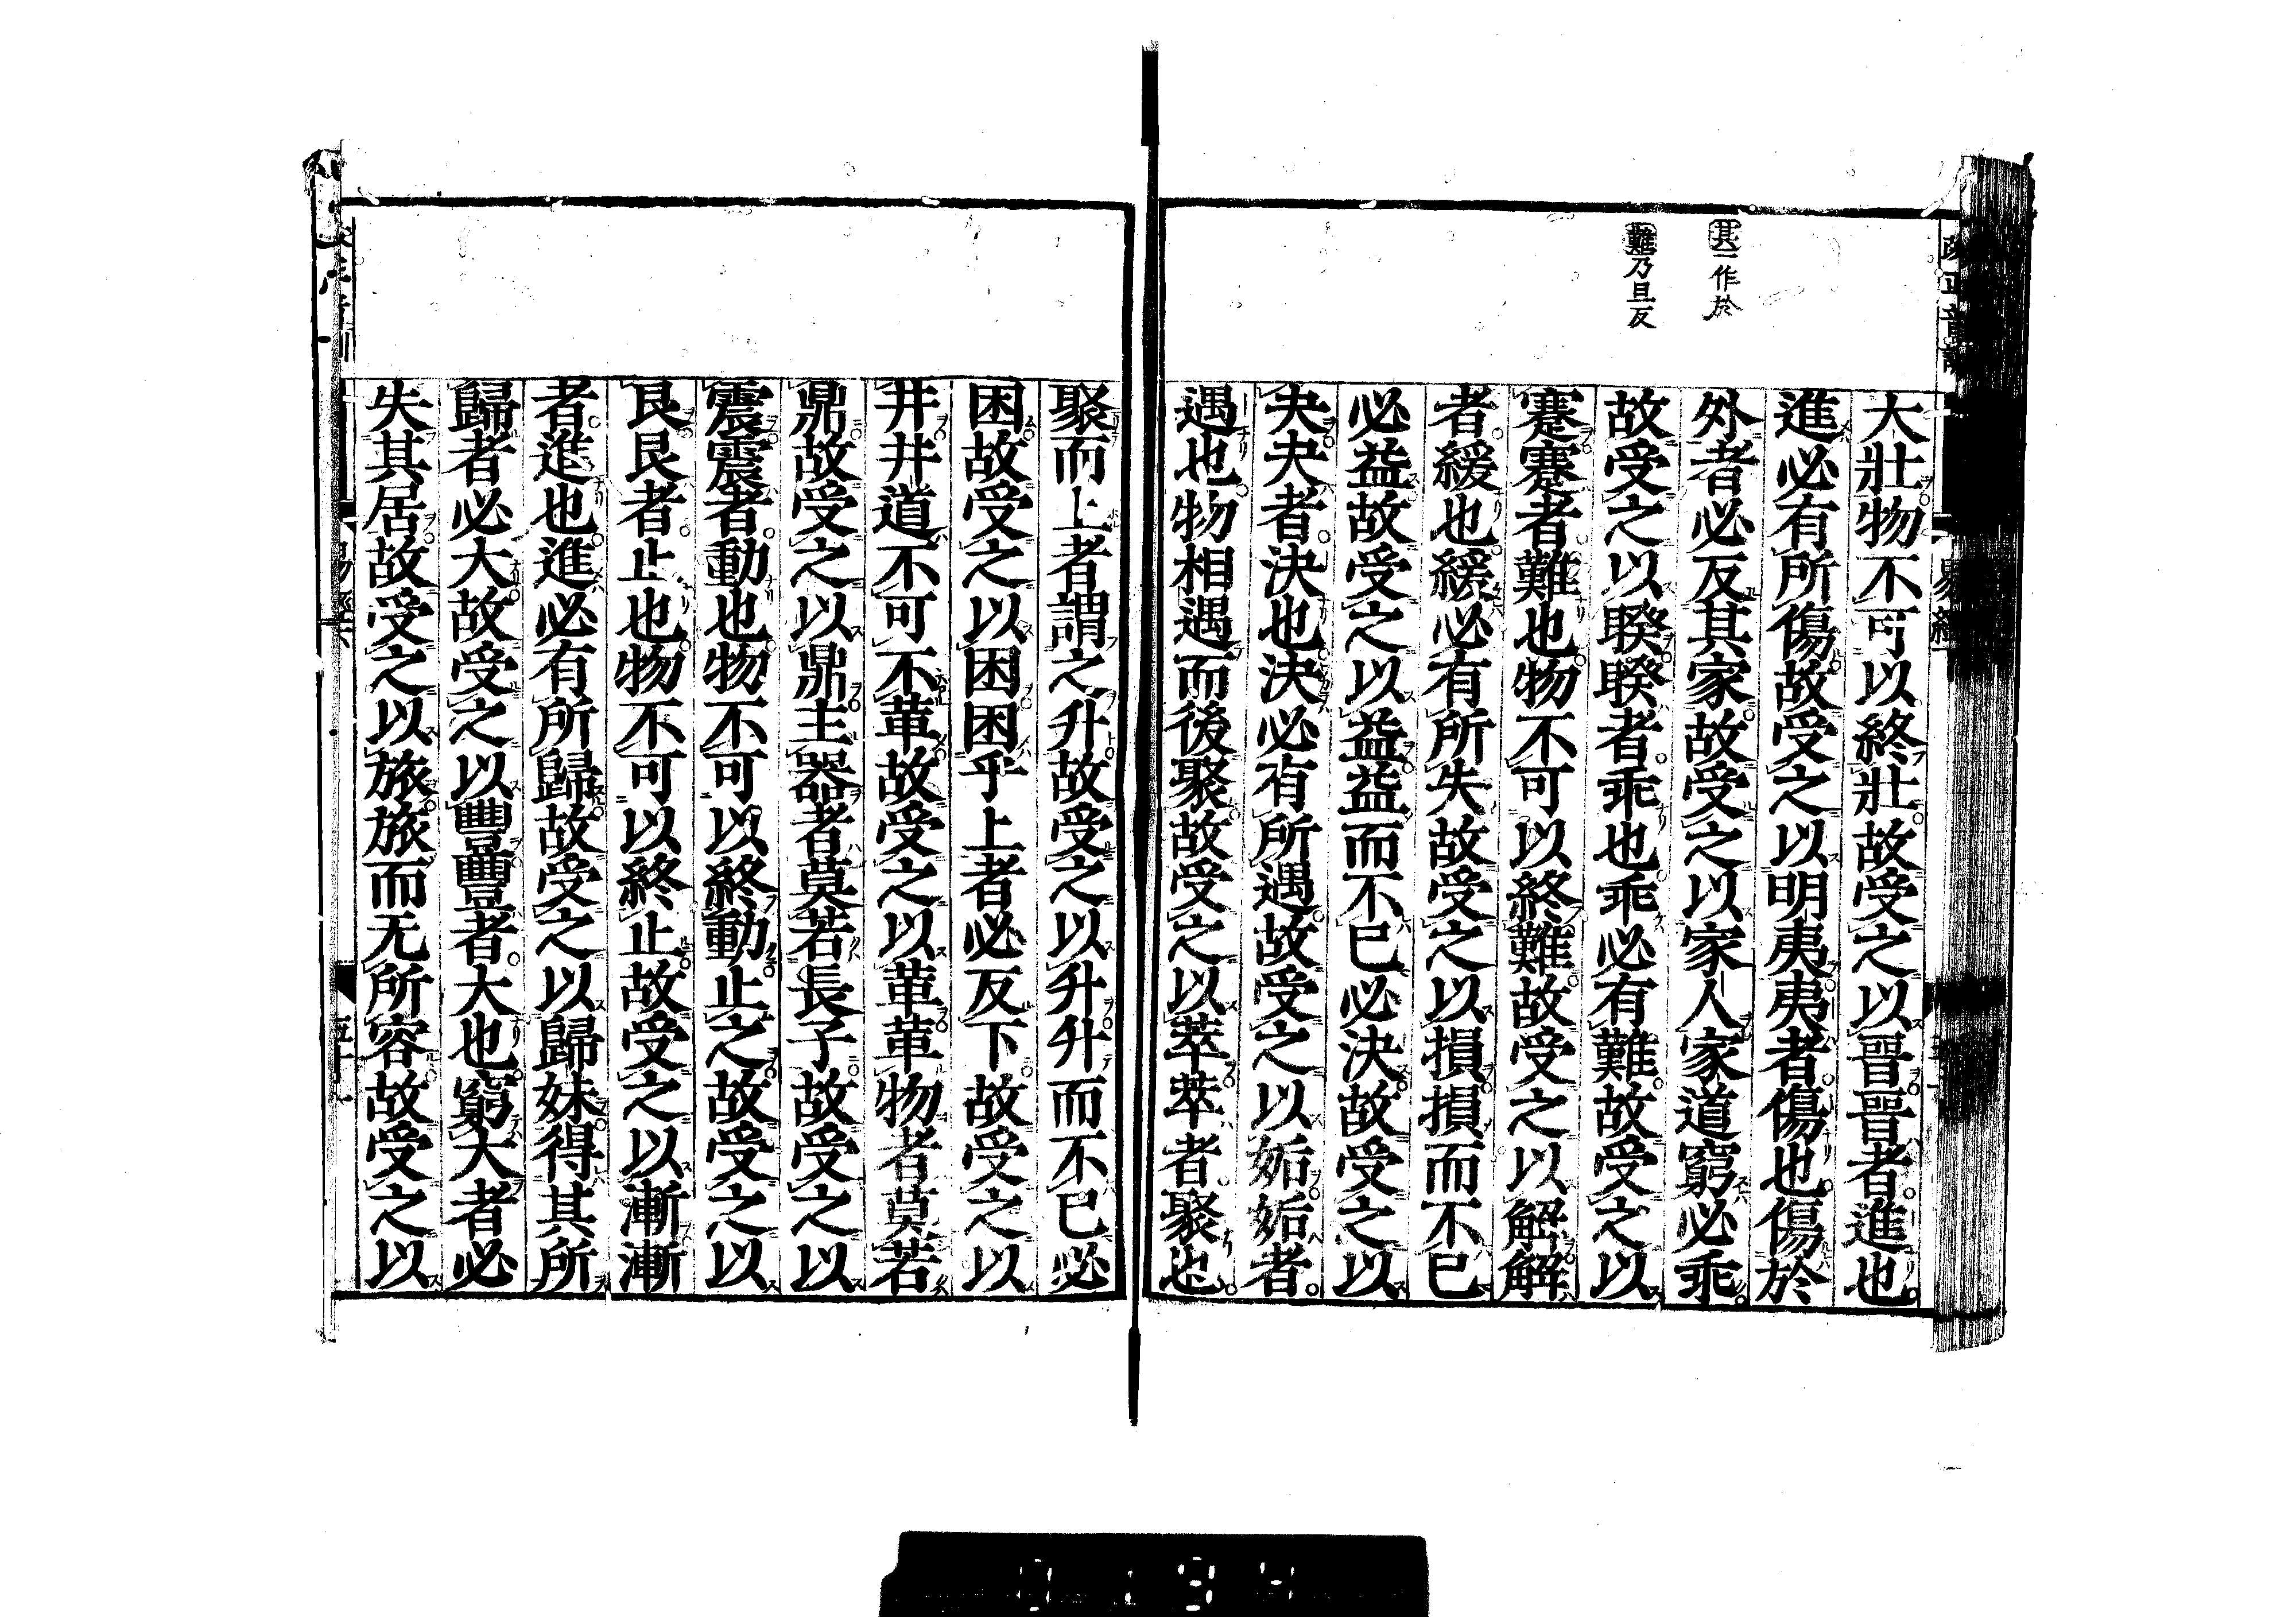 其一作於
難乃旦反
大壯物不可以終壯故受之以晉晉者進也
進必有所傷故受之以明夷夷者傷也傷於
外者必反其家故受之以家人家道窮必乖
故受之以睽睽者乖也乖必有難故受之以
蹇蹇者難也物不可以終難故受之以解解
者緩也緩必有所失故受之以損損而不已
必益故受之以益益而不已必決故受之以
夬夬者決也決必有所遇故受之以姤姤者
遇也物相遇而後聚故受之以萃萃者聚也
聚而上者謂之升故受之以升升而不已必
困故受之以困困乎上者必反下故受之以
井井道不可不革故受之以革革物者莫若
鼎故受之以鼎主器者莫若長子故受之以
震震者動也物不可以終動止之故受之以
艮艮者止也物不可以終止故受之以漸漸
者進也進必有所歸故受之以歸妹得其所
歸者必大故受之以豐豐者大也窮大者必
失其居故受之以旅旅而无所容故受之以